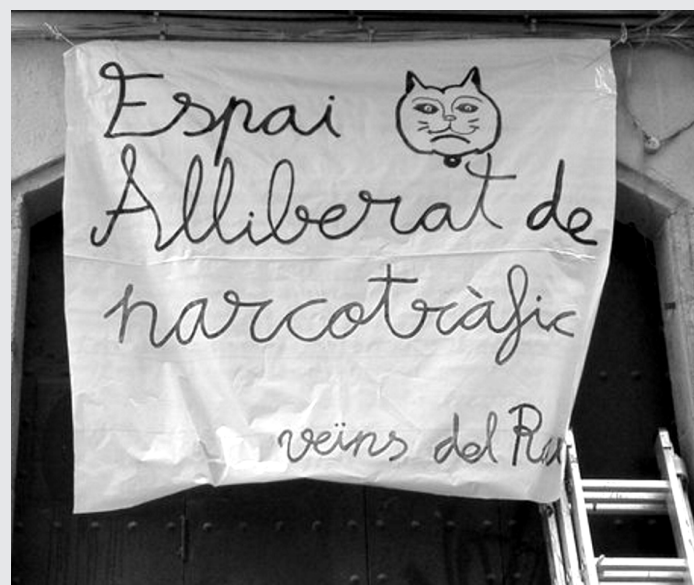 Espai
Alliberat de
narcotràfic
veïns del